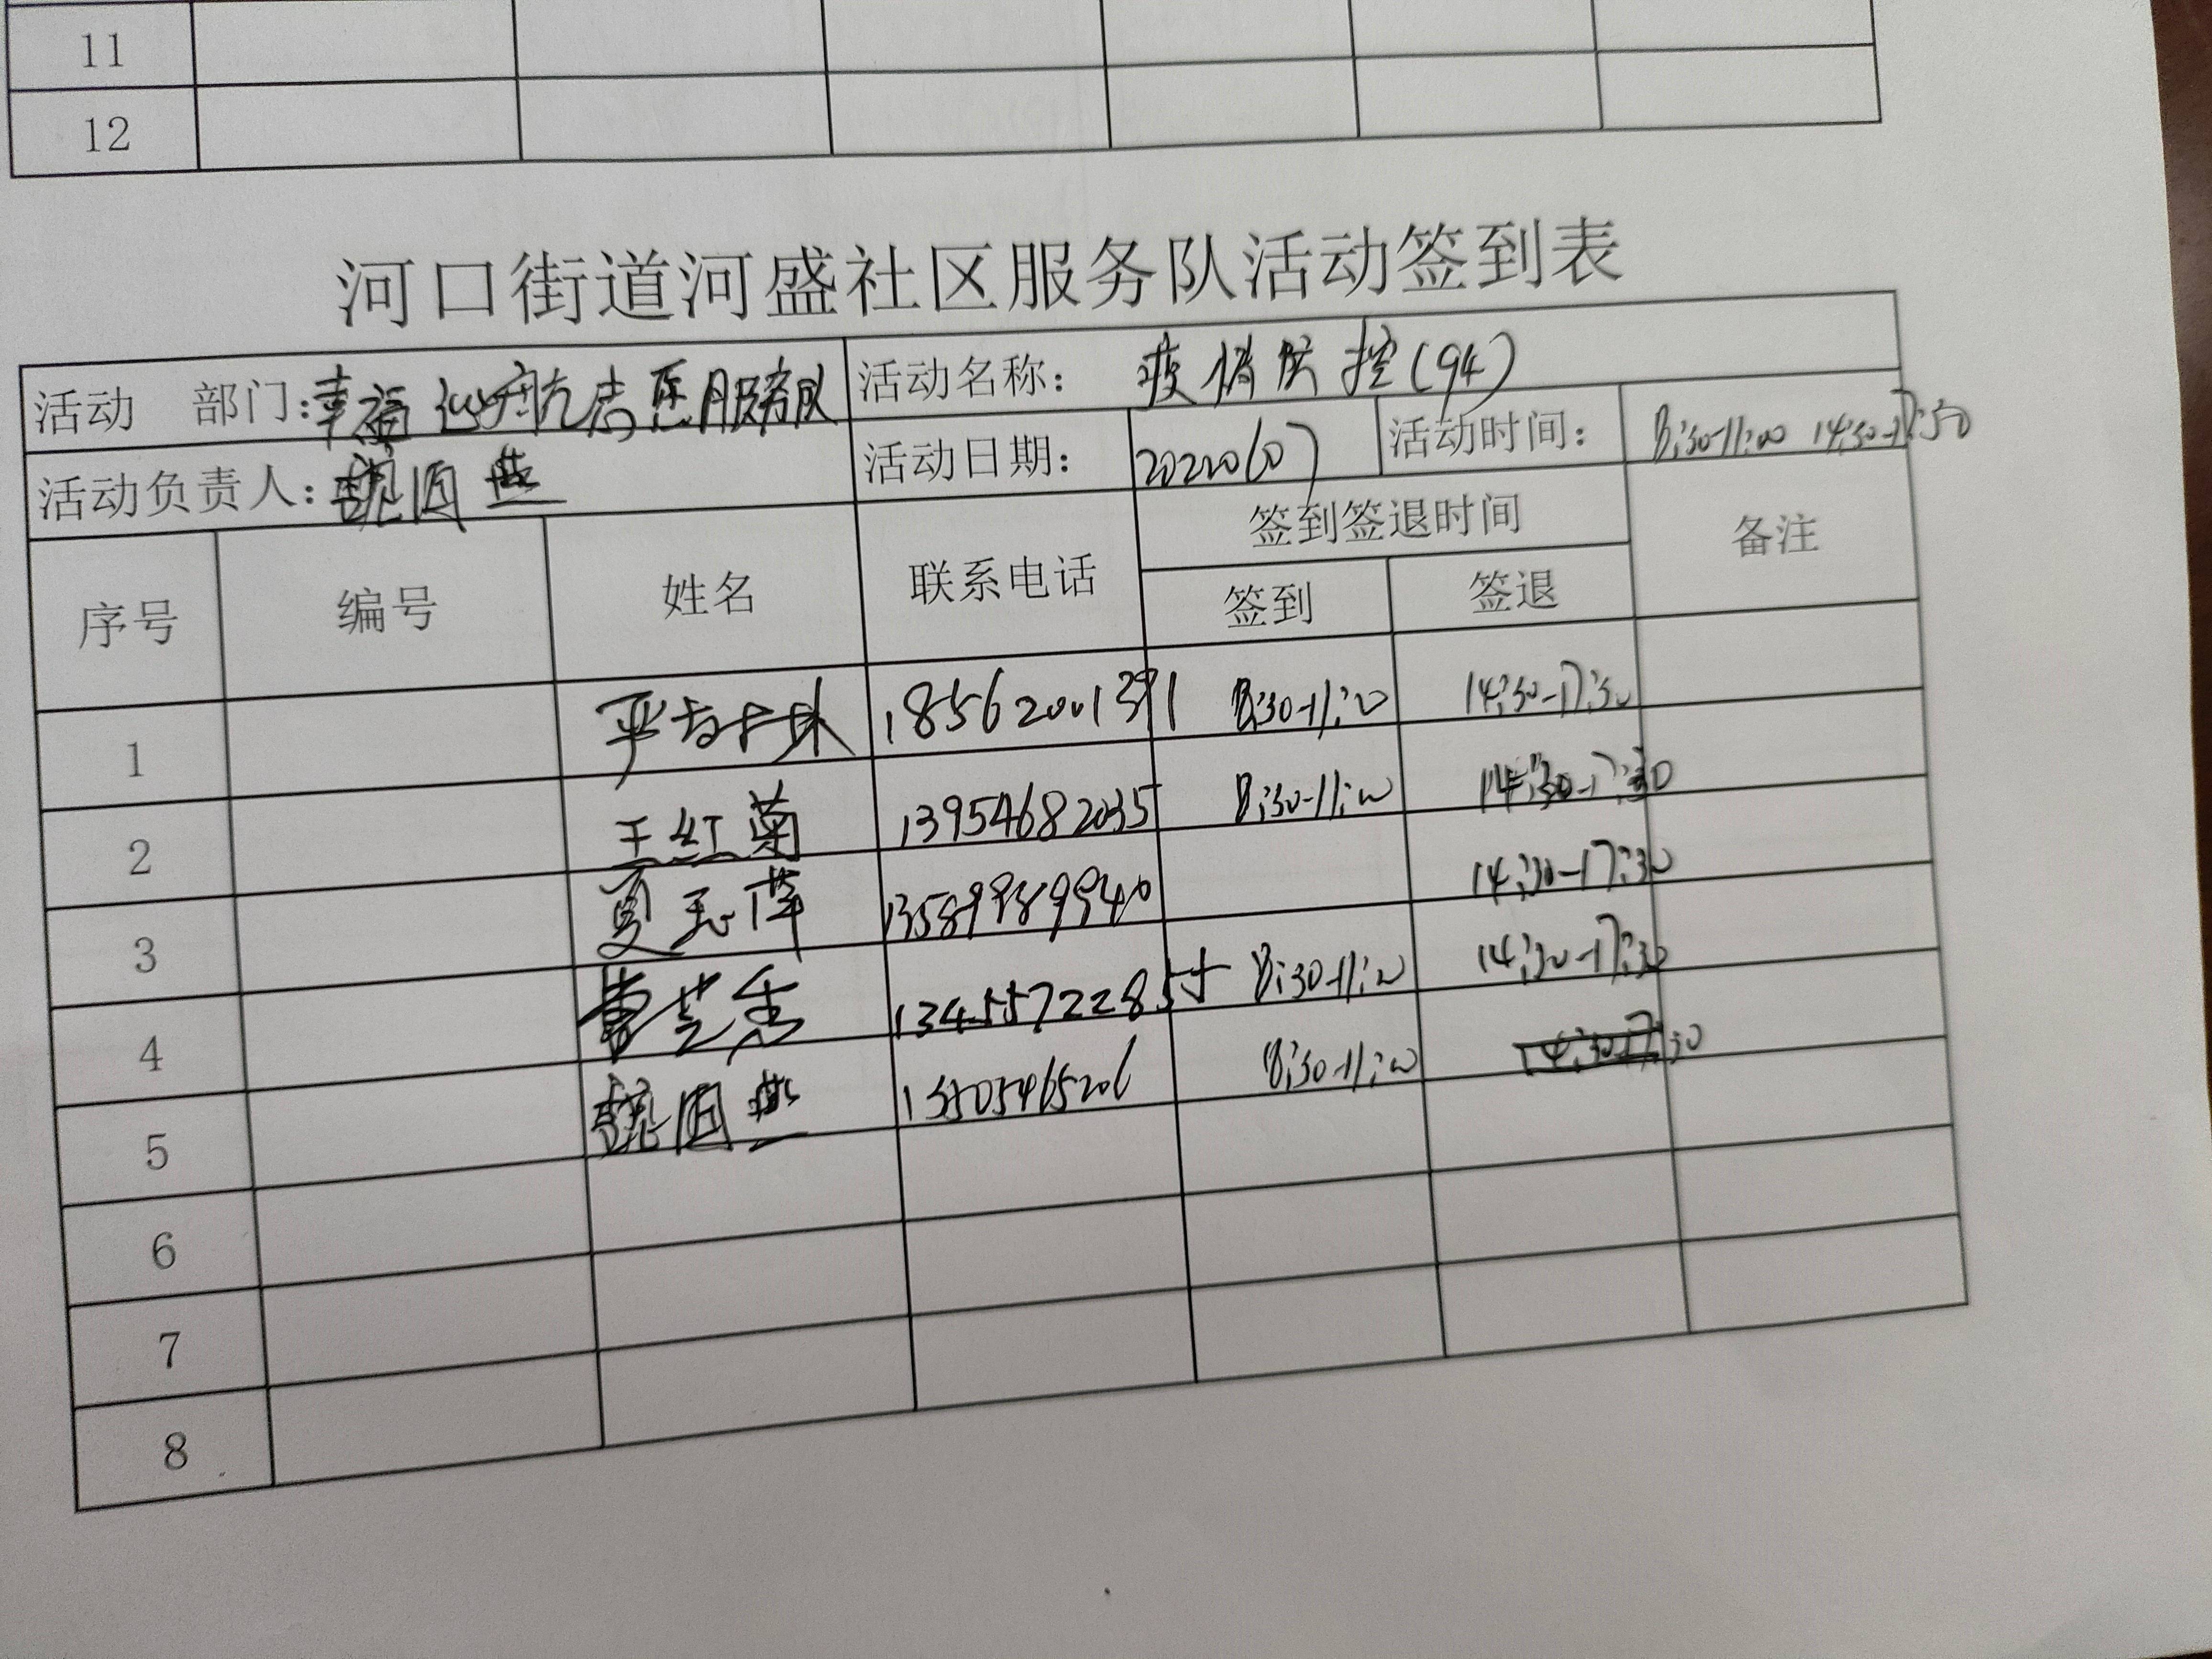 11
12
河口街道河盛社区服务队活动签到表
活动 部门：幸福巡航志愿服务队 活动名称： 疫情防控(94)
活动负责人： 活动日期： 活动时间： 8:30-11:00 14:30-17:30
序号 编号 姓名 联系电话 签到签退时间 备注
签到 签退
1 8:30-11:00 14:30-17:30
2 王红菊 13954682035 8:30-11:00 14:30-17:30
3 夏玉萍 13589989940 14:30-17:30
4 曹芝香 8:30-11:00 14:30-17:30
5 8:30-11:00 14:30-17:30
6
7
8